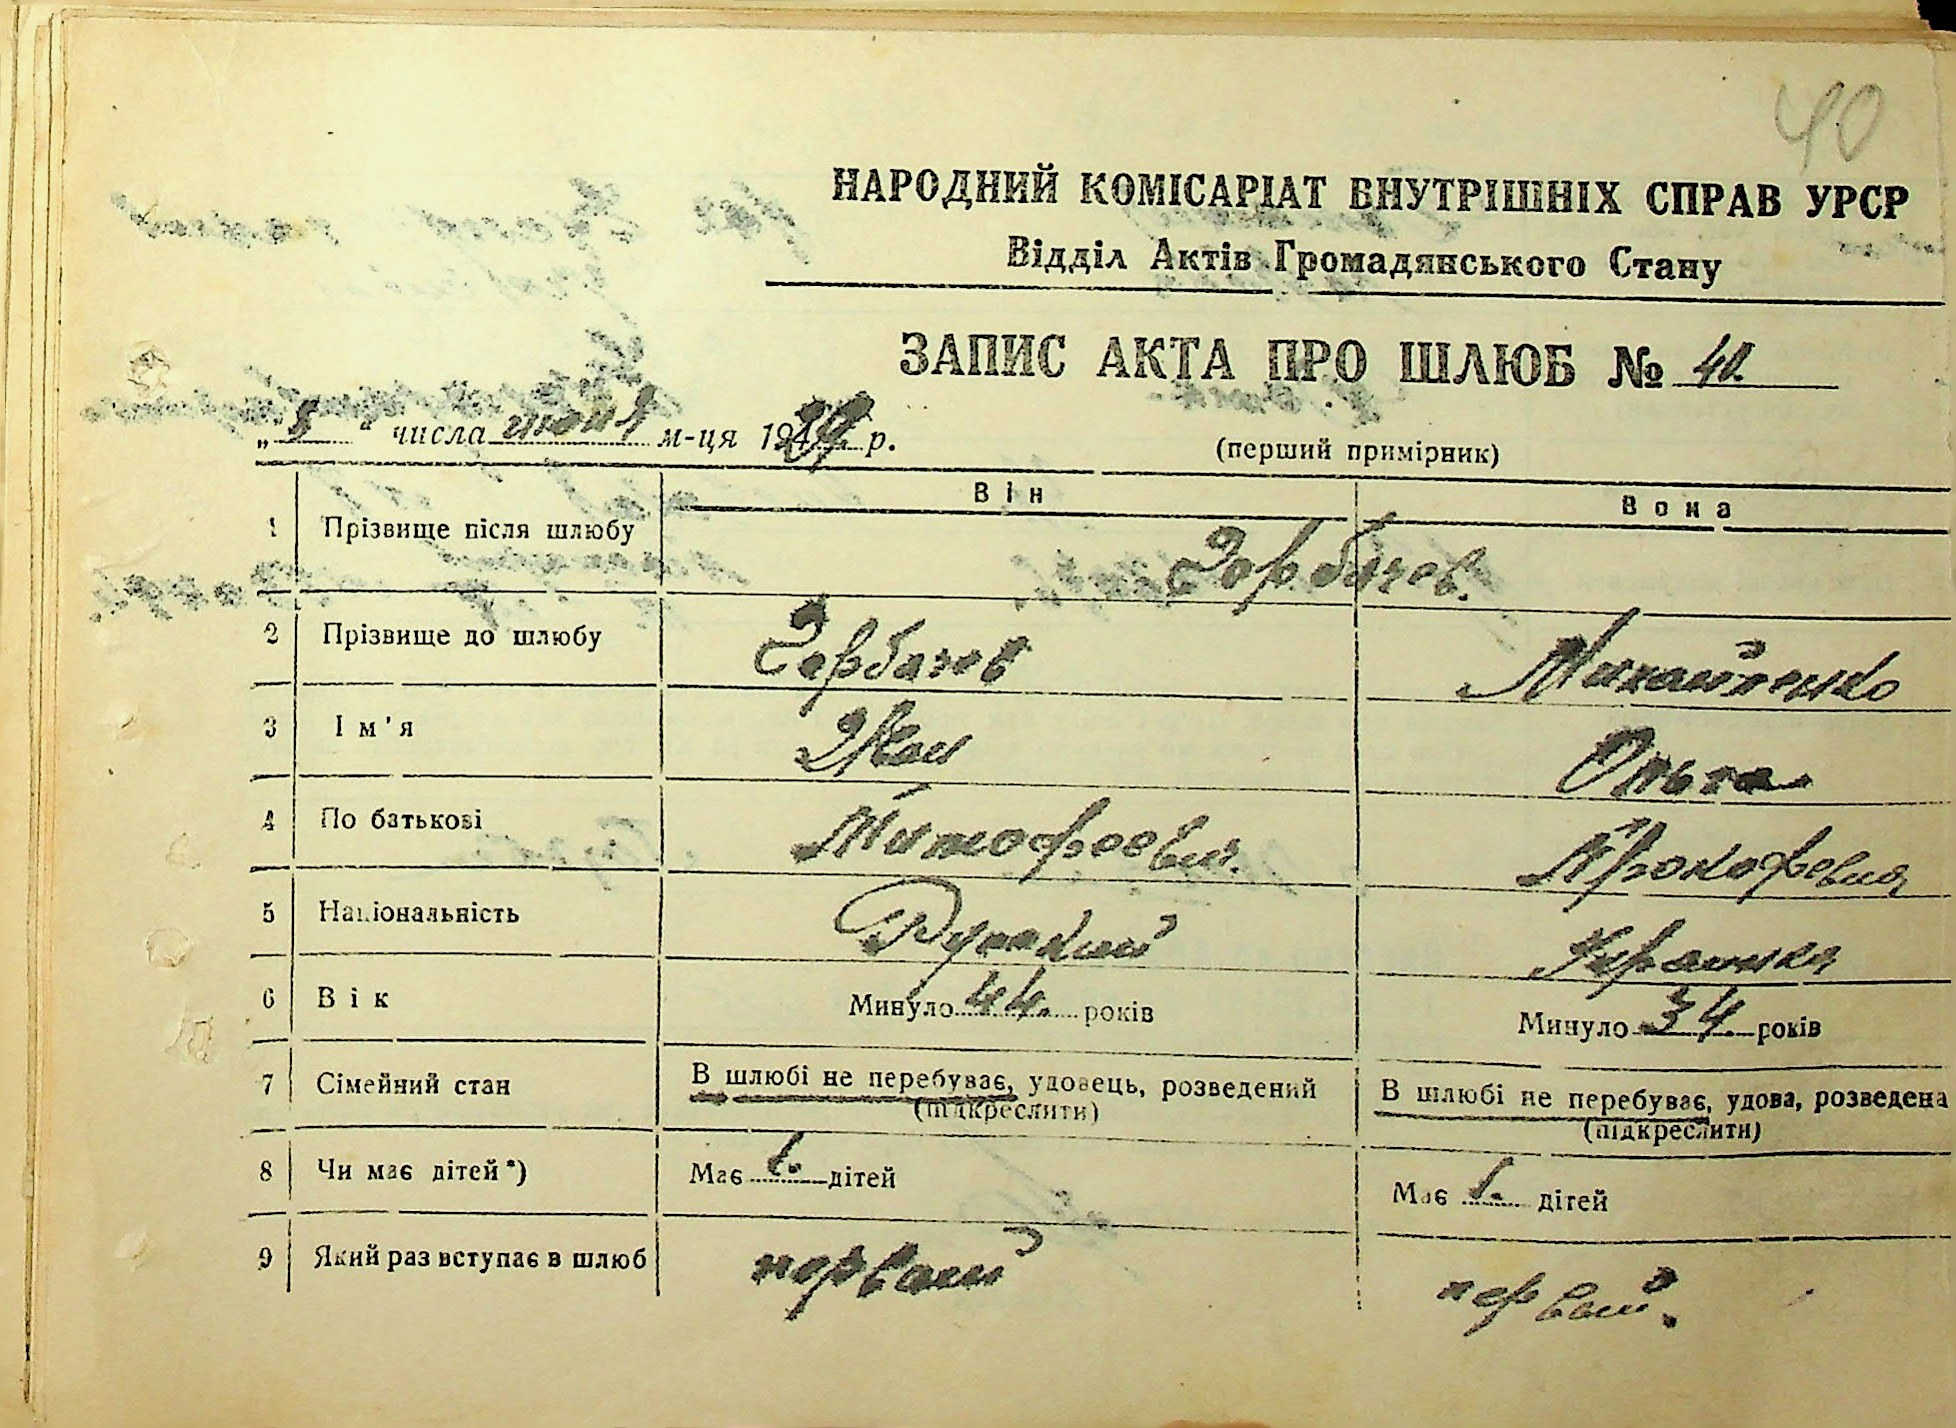 40
НАРОДНИЙ КОМІСАРІАТ ВНУТРІШНІХ СПРАВ УРСР
Відділ Актів Громадянського Стану
ЗАПИС АКТА ПРО ШЛЮБ № 40.
" числа м-ця 19 р.
(перший примірник)
Він Вона
1 Прізвище після шлюбу Горбачев.
2 Прізвище до шлюбу Горбачев Михайленко
3 Ім'я Иван Ольга
4 По батькові Тимофеевич. Прокофевна
5 Національність Русский Украинка
6 Вік Минуло 44. років Минуло 34. років
7 Сімейний стан В шлюбі не перебуває, удовець, розведений (підкреслити) В шлюбі не перебуває, удова, розведена (підкреслити)
8 Чи має дітей*) Має 1. дітей Має 1. дітей
9 Який раз вступає в шлюб первый первый.